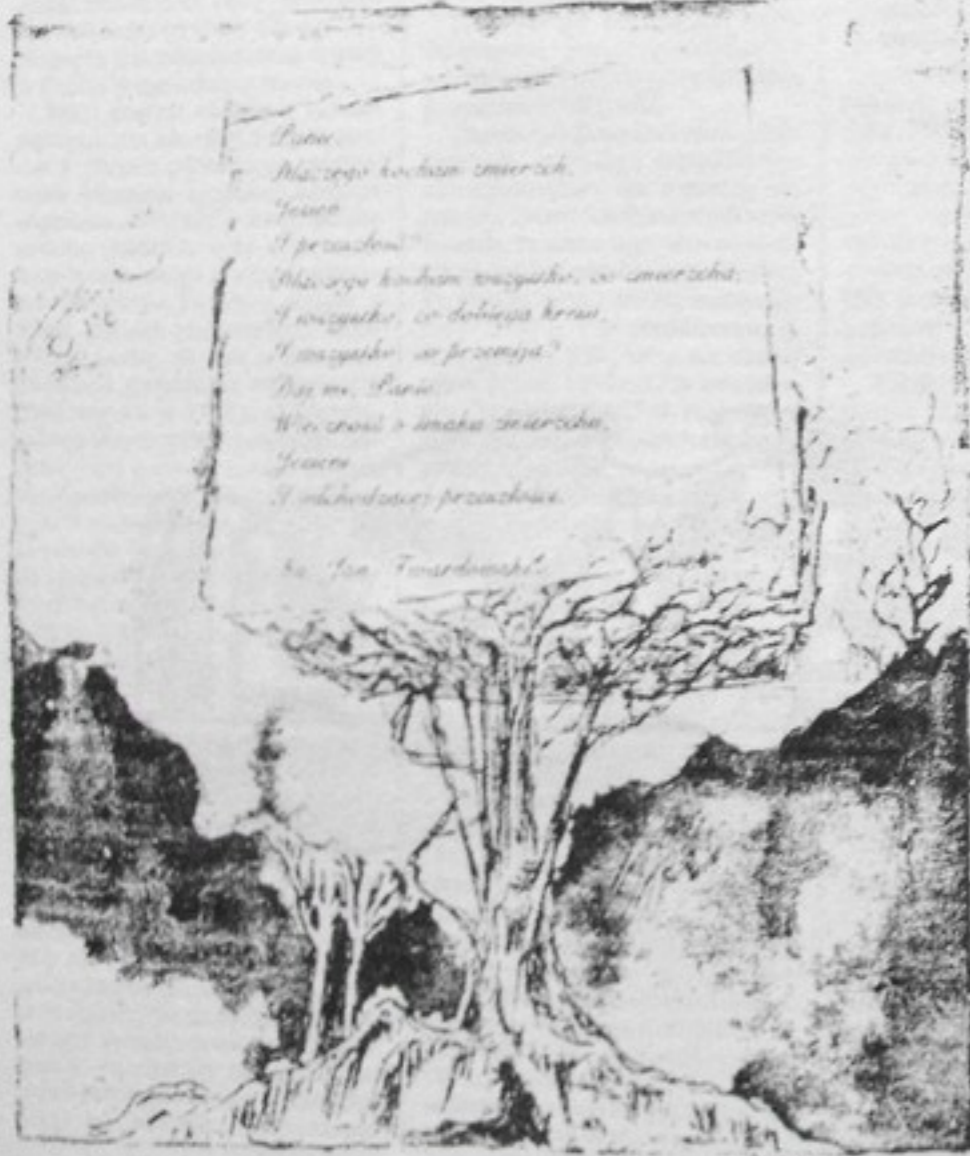 Panie
Dlaczego kocham zmierzch,
Jesień
I przeszłość?
Dlaczego kocham wszystko, co zmierzcha,
I wszystko, co dobiega kresu,
I wszystko, co przemija?
Daj mi, Panie,
Wieczność o smaku zmierzchu,
Jesieni
I odchodzącej przeszłości.
ks. Jan Twardowski